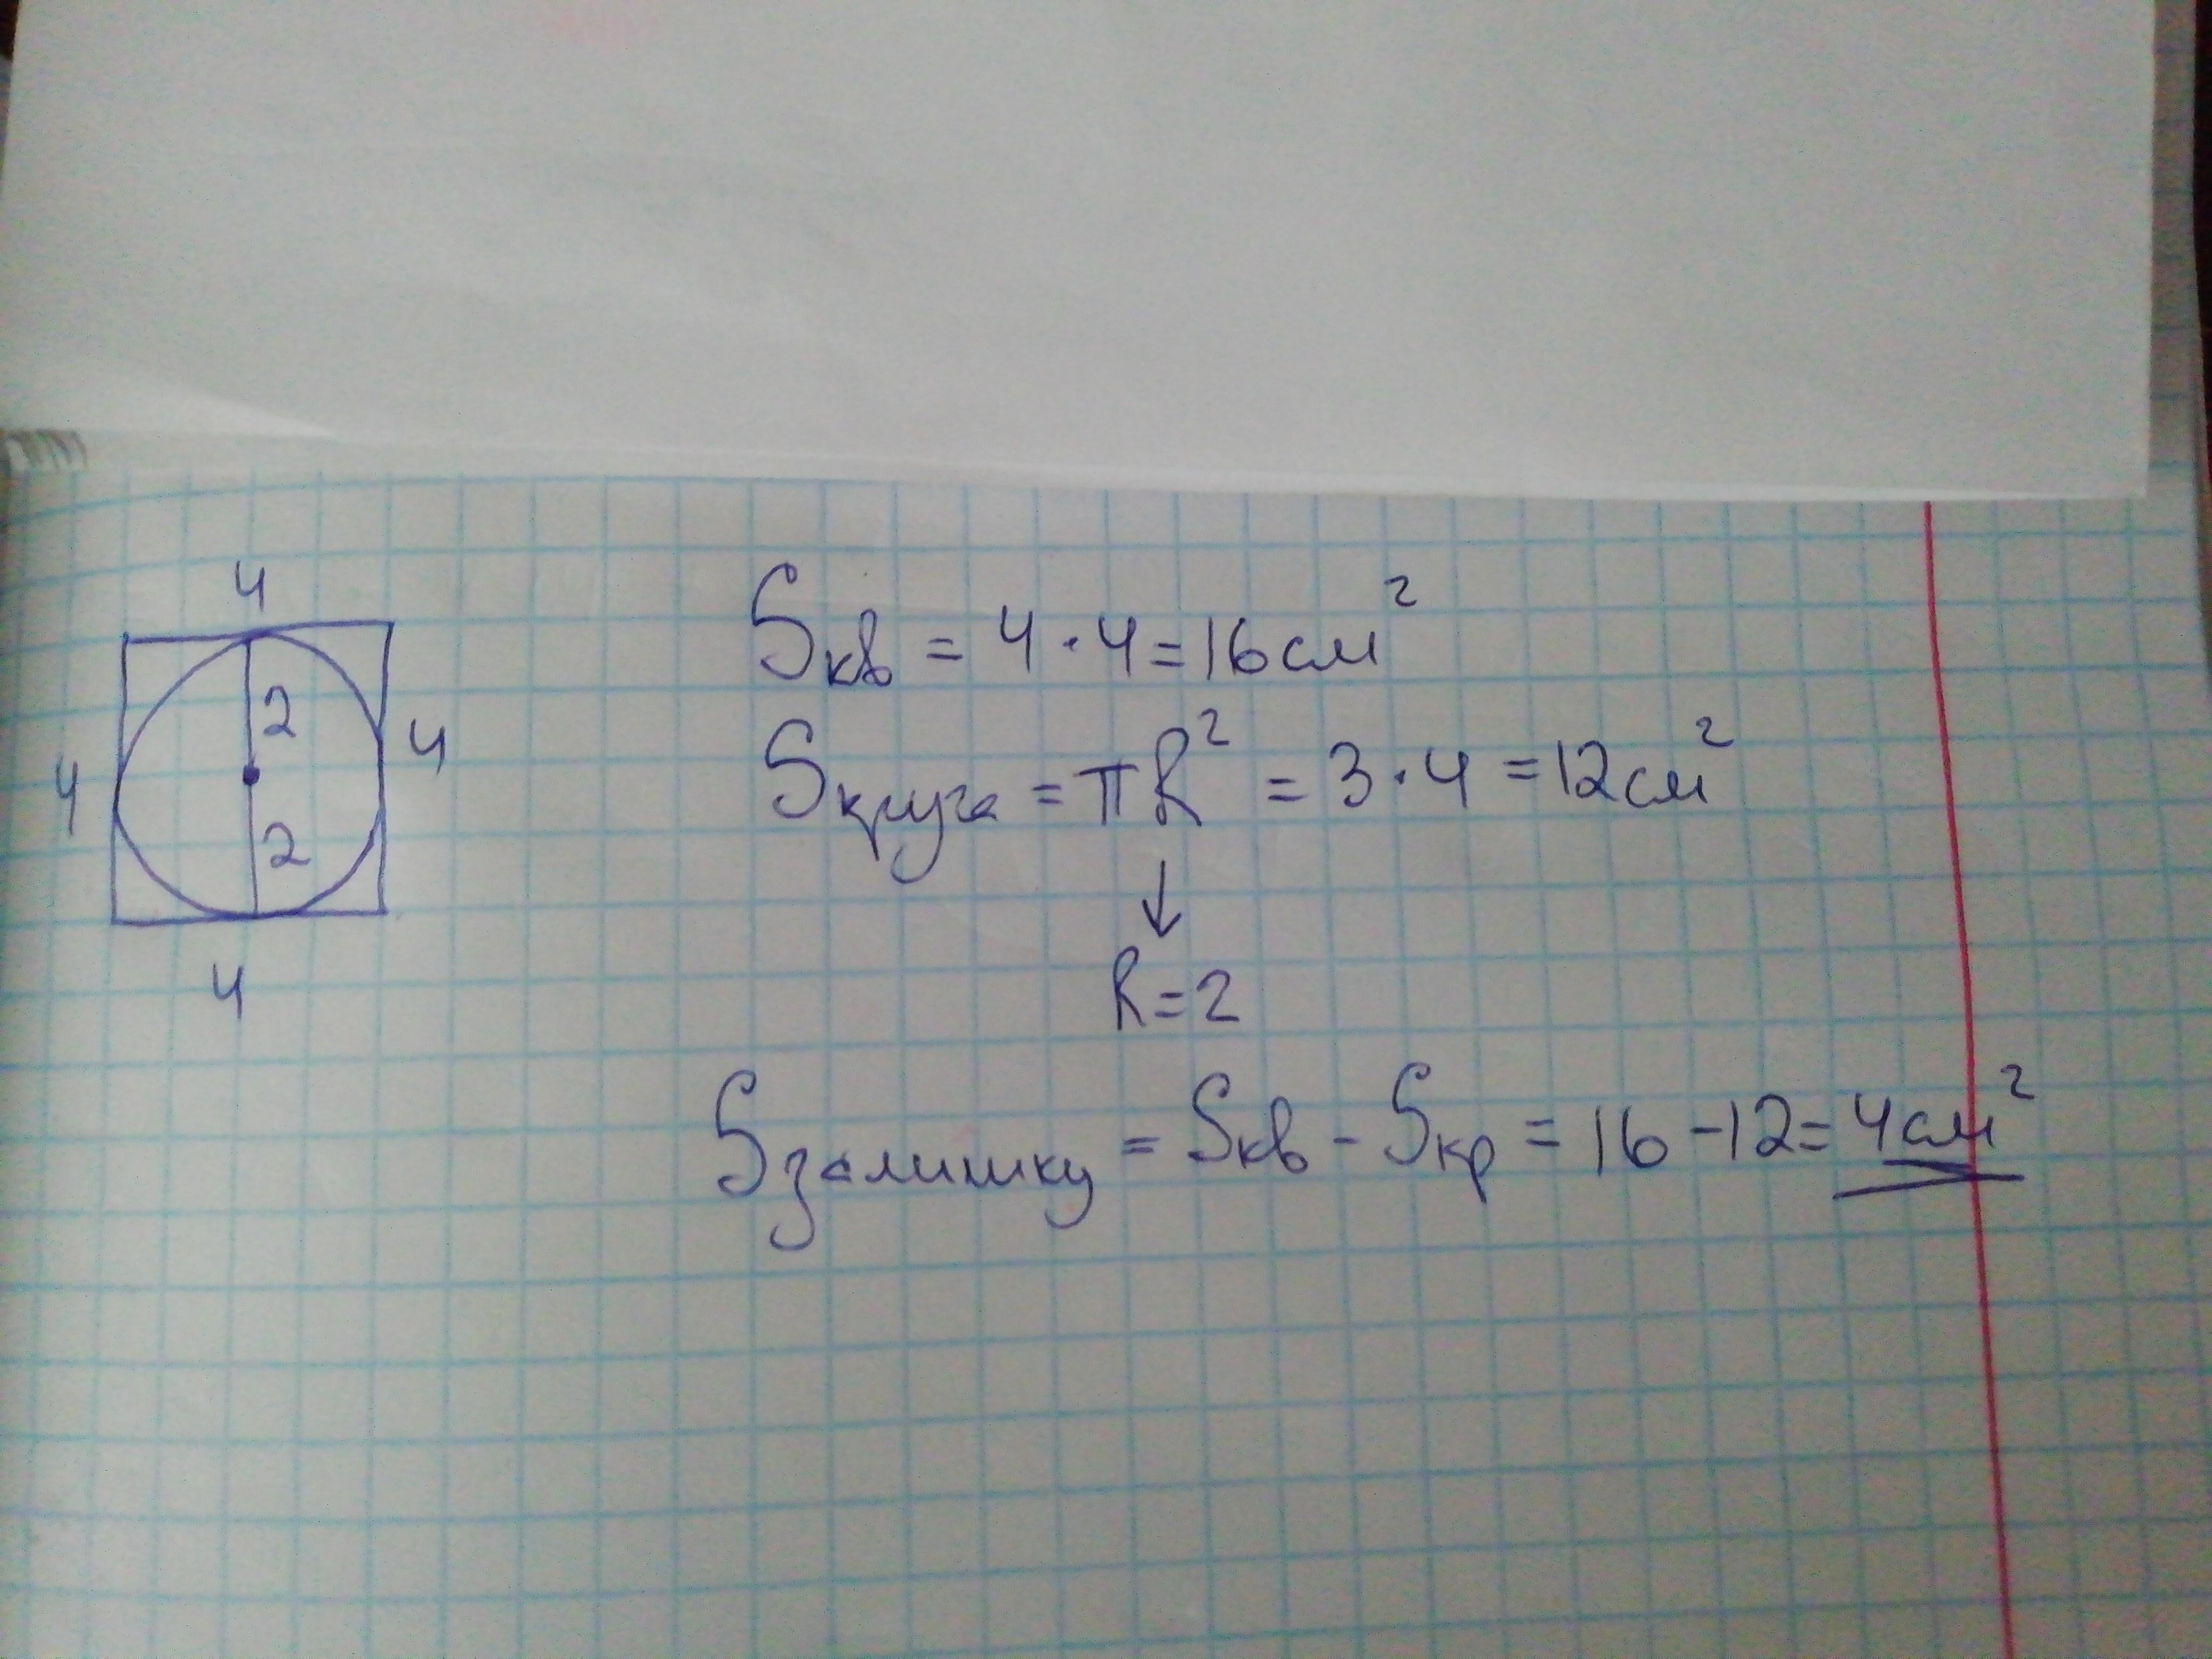 4
2
4
4
2
4
Sкв = 4 · 4 = 16 см²
Sкруга = πR² = 3 · 4 = 12 см²
↓
R = 2
Sзалишку = Sкв - Sкр = 16 - 12 = 4 см²